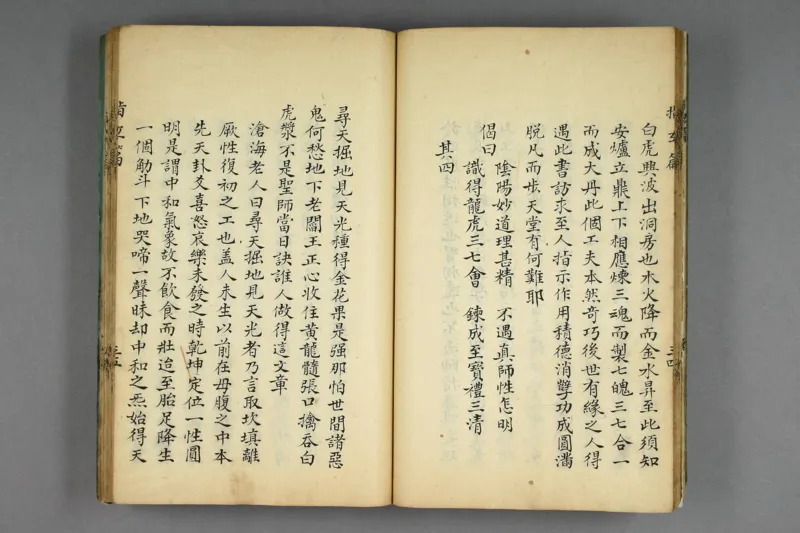 白虎興波出洞房也木火降而金水昇至此須知
安爐立鼎上下相應煉三魂而製七魄三七合一
而成大丹此個工夫本然奇巧後世有緣之人得
遇此書訪求至人指示作用積德消孽功成圓滿
脫凡而步天堂有何難耶
偈曰 陰陽妙道理甚精 不遇真師性怎明
識得龍虎三七會 鍊成至寶禮三清
其四
尋天掘地見天光種得金花果是强那怕世間諸惡
鬼何愁地下老閻王正心收住黄龍髓張口擒吞白
虎漿不是聖師當日訣誰人做得這文章
滄海老人曰尋天掘地見天光者乃言取坎填離
厥性復初之工也盖人未生以前在母腹之中本
先天卦爻喜怒哀樂未發之時乾坤定位一性圓
明是謂中和氣象故不飲食而壯迨至胎足降生
一個觔斗下地哭啼一聲昧却中和之炁始得天